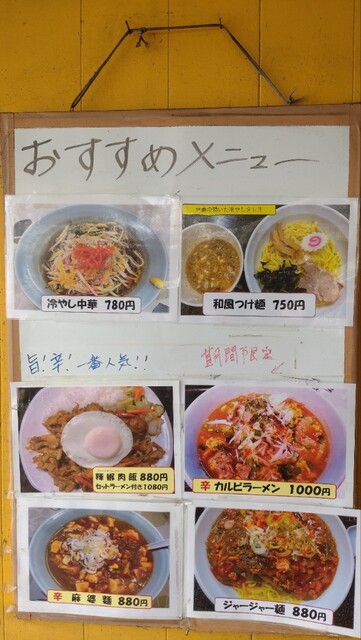 おすすめメニュー
冷やし中華 780円
和風つけ麺 750円
旨!辛!一番人気!!
期間限定
辣椒肉飯 880円
セットラーメン付き1080円
辛 カルビラーメン 1000円
辛 麻婆麺 880円
ジャージャー麺 880円